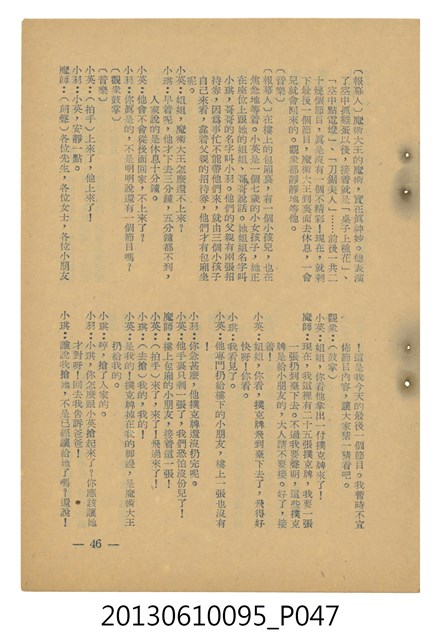 (報幕人)魔術大王的魔術,實在眞神妙。他表演
了空中抓鷄蛋以後,接着就是「桌子上種花」、
「空中點電燈」、「刀鋸美人」……前後一共二
十幾個節目,眞是沒有一個不精彩!現在,就剩
下最後一個節目,魔術大王到裏面去休息,一會
兒就會回來的。觀衆都靜靜地等他。
(音樂)
(報幕人)在樓上的包廂裏,有一個小孩兒,也在
焦急地等着。小英是一個七歲的小女孩子,她正
在座位上跟她的姐姐、哥哥說話。她姐姐名字叫
小琪,哥哥的名字叫小羽。他們的父親有兩張招
待券,因爲事忙不能帶他們來,就由三個小孩子
自己來看,靠着父親的招待券,他們才有包廂坐
呢。
小英:姐姐,魔術大王怎麼還不上來?
小琪:早着呢,他才下去三分鐘,五分鐘都不到,
人家說的是休息十分鐘。
小英:他會不會從後面回家,不上來了?
小羽:你眞是的,不是明明說還有一個節目嗎?
(觀衆鼓掌)
(音樂)
小英:(拍手)上來了,他上來了!
小羽:小英,安靜一點。
魔師:(朗聲)各位先生,各位女士,各位小朋友
!這是我今天的最後一個節目。我暫時不宣
佈節目內容,讓大家猜一猜看吧。
觀衆:(鼓掌)
小英:姐姐,你看他拿出一付撲克牌來了!
魔師:現在,我這裡有二十五張撲克牌,我要一張
一張扔到臺下去。不過我要聲明,這些撲克
牌是給小朋友的,大人請不要接。好了,接
着!
小英:姐姐,你看,撲克牌飛到臺下去了,飛得好
快呀!你看。
小琪:我看見了。
小英:他專門扔給樓下的小朋友,樓上一張也沒有
!
小羽:你急甚麼,他撲克牌還沒扔完呢。
小英:他手裏只剩一張了,我們恐怕沒份兒了!
魔師:樓上包廂的小朋友,接着這一張!
小英:(拍手)來了,來了!飛過來了!
小羽:(去搶)我的,我的!
小英:是我的!撲克牌掉在我的脚邊,是魔術大王
扔給我的。
小琪:哼,搶了人家的。
小羽:小琪,你怎麼跟小英搶起來了?你應該讓她
才對呀!回去我告訴爸爸!
小琪:誰說我搶她,不是已經讓給她了嗎?還說!
— 46 —
20130610095_P047